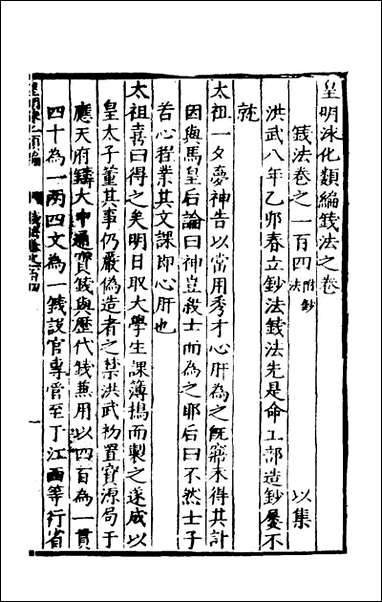 皇明泳化類編錢法之卷
錢法卷之一百四 附鈔法 以集
洪武八年乙卯春立鈔法錢法先是命工部造鈔屡不
就
太祖一夕夢神告以當用秀才心肝為之旣寤未得其計
因與馬皇后論曰神豈殺士而為之耶后曰不然士子
苦心程業其文課即心肝也
太祖喜曰得之矣明日取大學生課簿搗而製之遂成以
皇太子董其事仍嚴偽造者之禁洪武初置寳源局于
應天府鑄大中通寳錢與歷代錢兼用以四百為一貫
四十為一兩四文為一錢設官專管至丁江西等行省